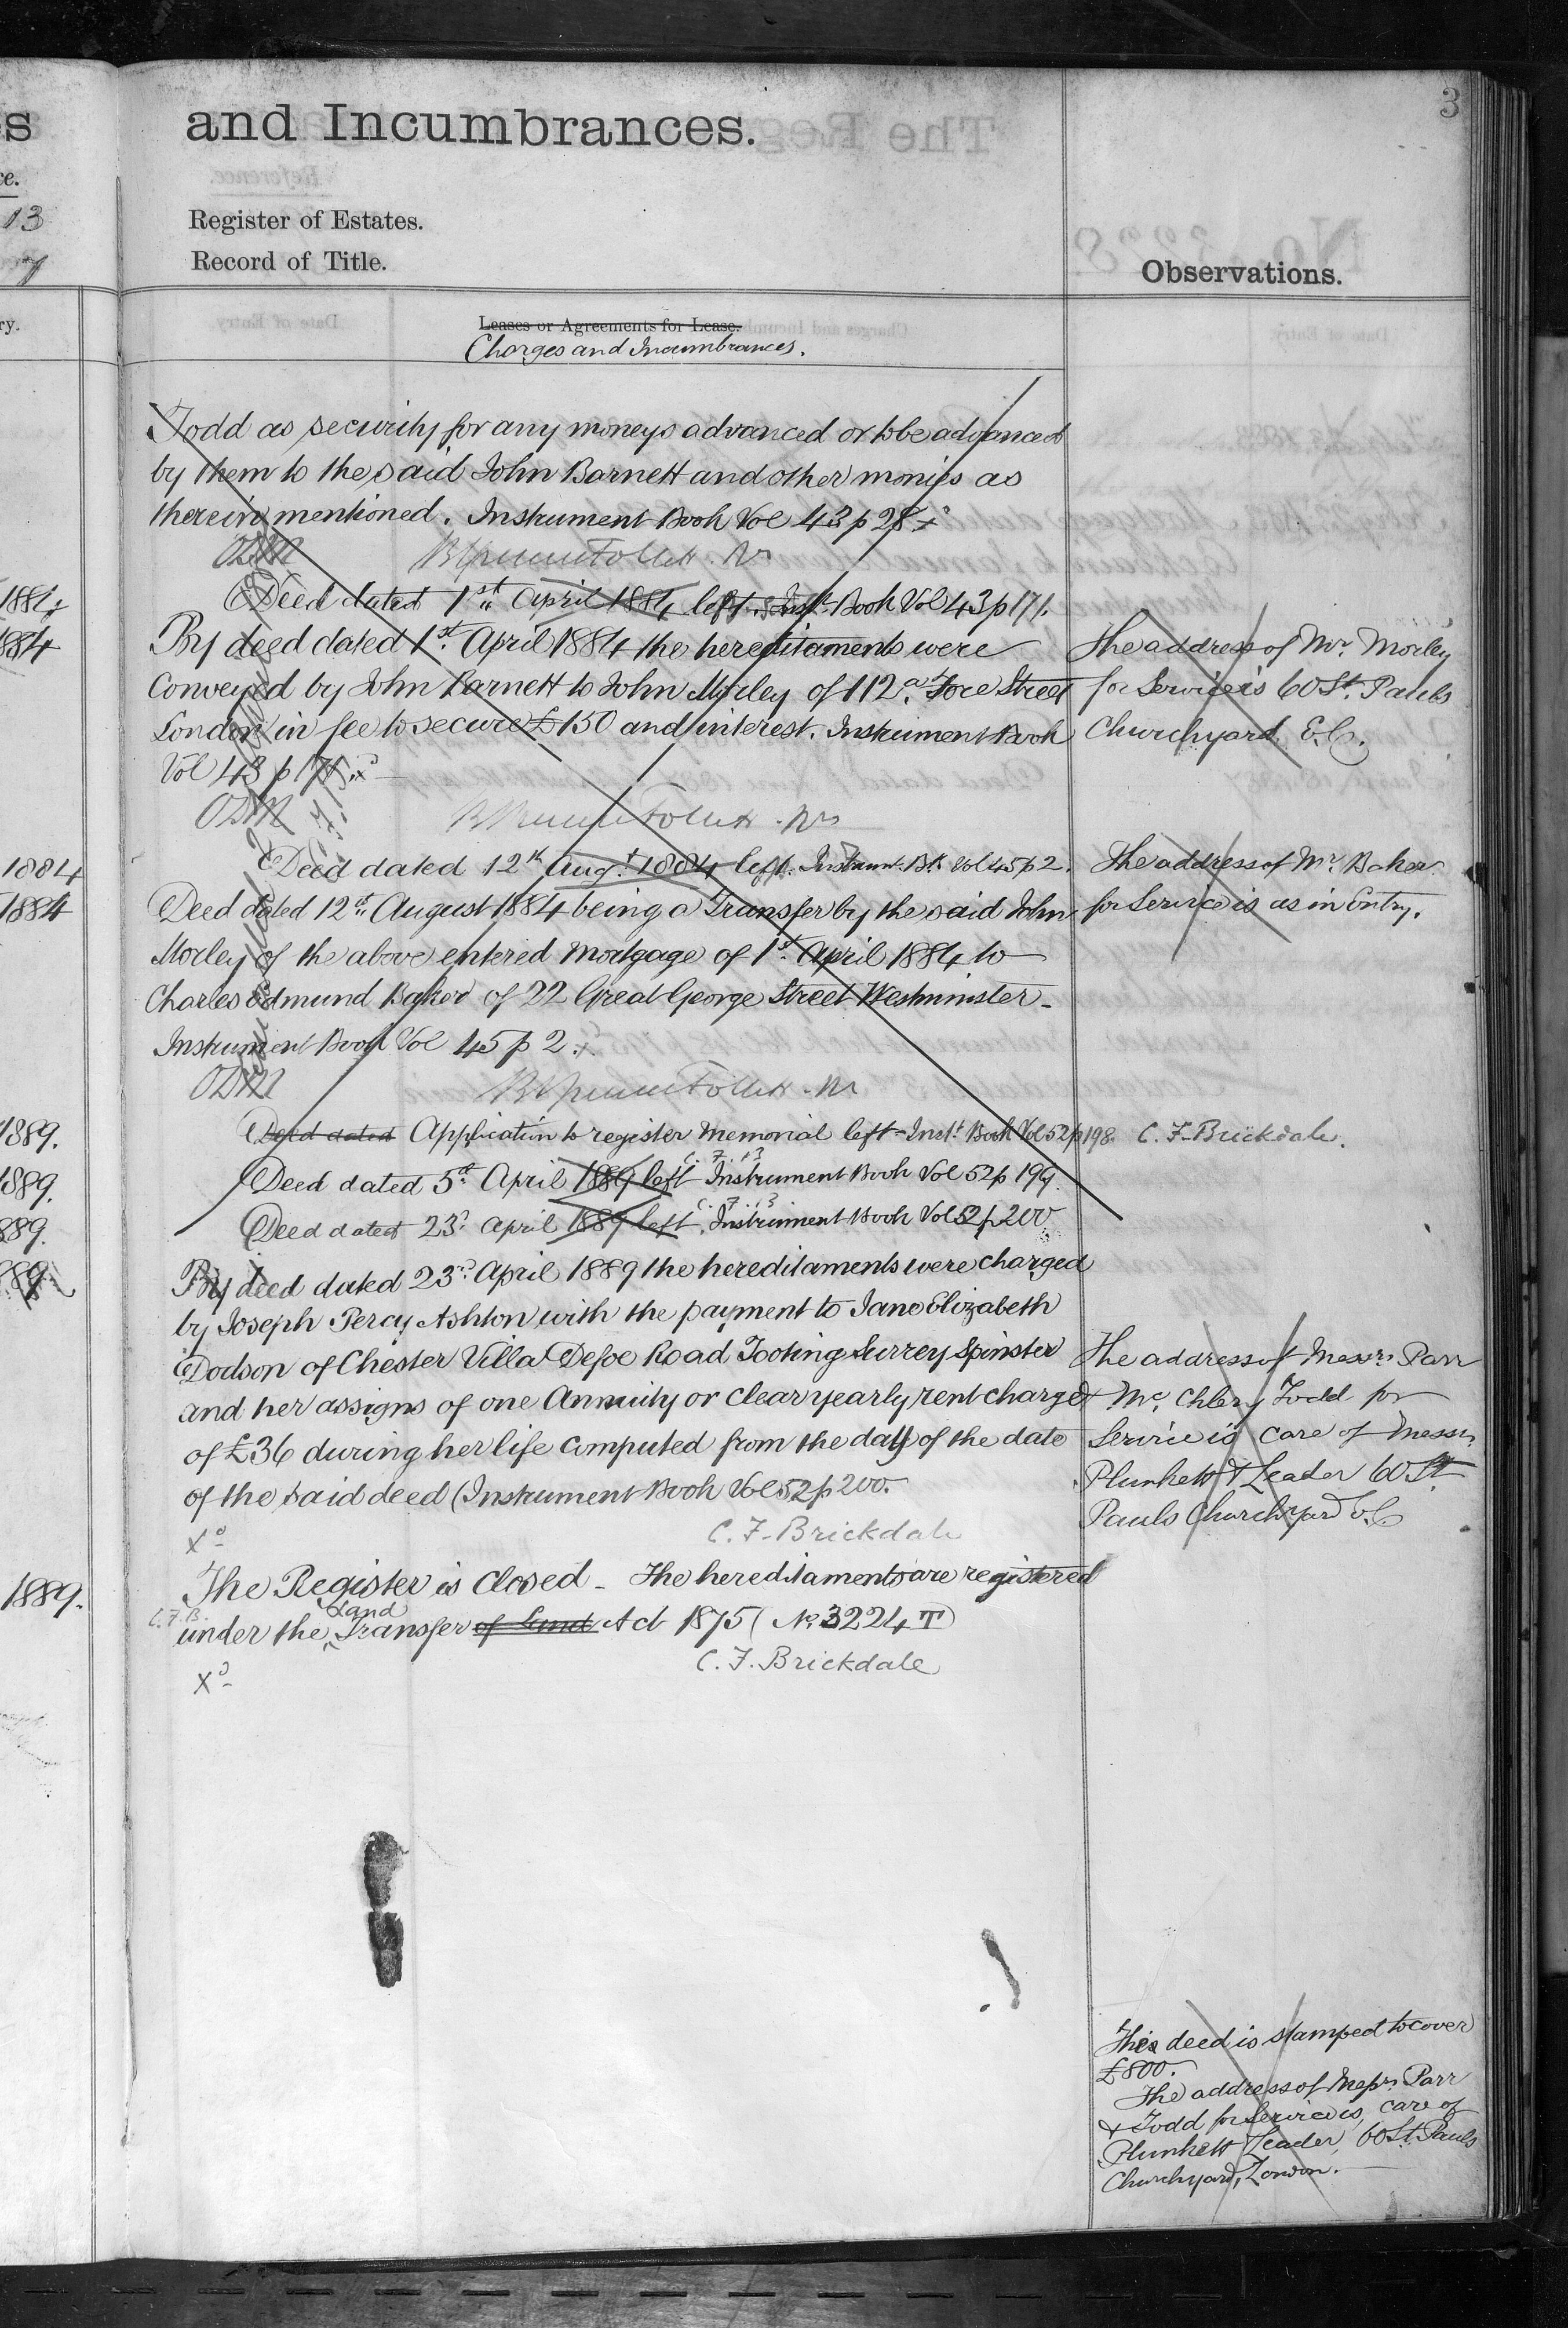 3
and Incumbrances.
Register of Estates.
Record of Title.
Observations.
Leases or Agreements for Lease.
Charges and Incumbrances.
Todd as security for any moneys advanced or to be advanced
by them to the said John Barnett and other monies as
therein mentioned. Instrument Book Vol 43 p 28
Deed dated 1st April 1884 left. Inst. Book Vol 43 p 171.
By deed dated 1st April 1884 the hereditaments were
Conveyed by John Barnett to John Morley of 112a Fore Street
London in fee to secure £150 and interest. Instrument Book
Vol 43 p 171.
The address of Mr. Morley
for Service is 60 St. Pauls
Churchyard E.C.
Deed dated 12th Augt 1884 left. Instrumt. Bk. Vol 45 p 2.
Deed dated 12th August 1884 being a Transfer by the said John
Morley of the above entered Mortgage of 1st April 1884 to
Charles Edmund Baker of 22 Great George Street Westminister
Instrument Book Vol 45 p 2.
The address of Mr. Baker
for Service is as in Entry.
Deed dated Application to register Memorial left Inst. Book Vol 52 p 198. C. F. Brickdale.
Deed dated 5th April 1889 left Instrument Book Vol 52 p 199
Deed dated 23d April 1889 left Instrument Book Vol 52 p 200
By deed dated 23rd April 1889 the hereditaments were charged
by Joseph Percy Ashton with the payment to Jane Elizabeth
Dodson of Chester Villa Defoe Road Tooting Surrey Spinster
and her assigns of one Annuity or clear yearly rent charge
of £36 during her life computed from the day of the date
of the said deed (Instrument Book Vol 52 p 200.
C. F. Brickdale
The address of Messrs Parr
Todd for
Service is care of Messrs
Plunkett & Leader 60 St
Pauls Churchyard E.C
The Register is Closed - The hereditaments are registered
C.F.B. under the Land Transfer of Land Act 1875 (No. 3224 T)
C. F. Brickdale
This deed is stamped to cover
£800.
The address of Messrs Parr
& Todd for Service is, care of
Plunkett & Leader, 60 St. Pauls
Churchyard, London.
13
7
1884
1884
1884
1884
1889.
1889.
889.
1889.